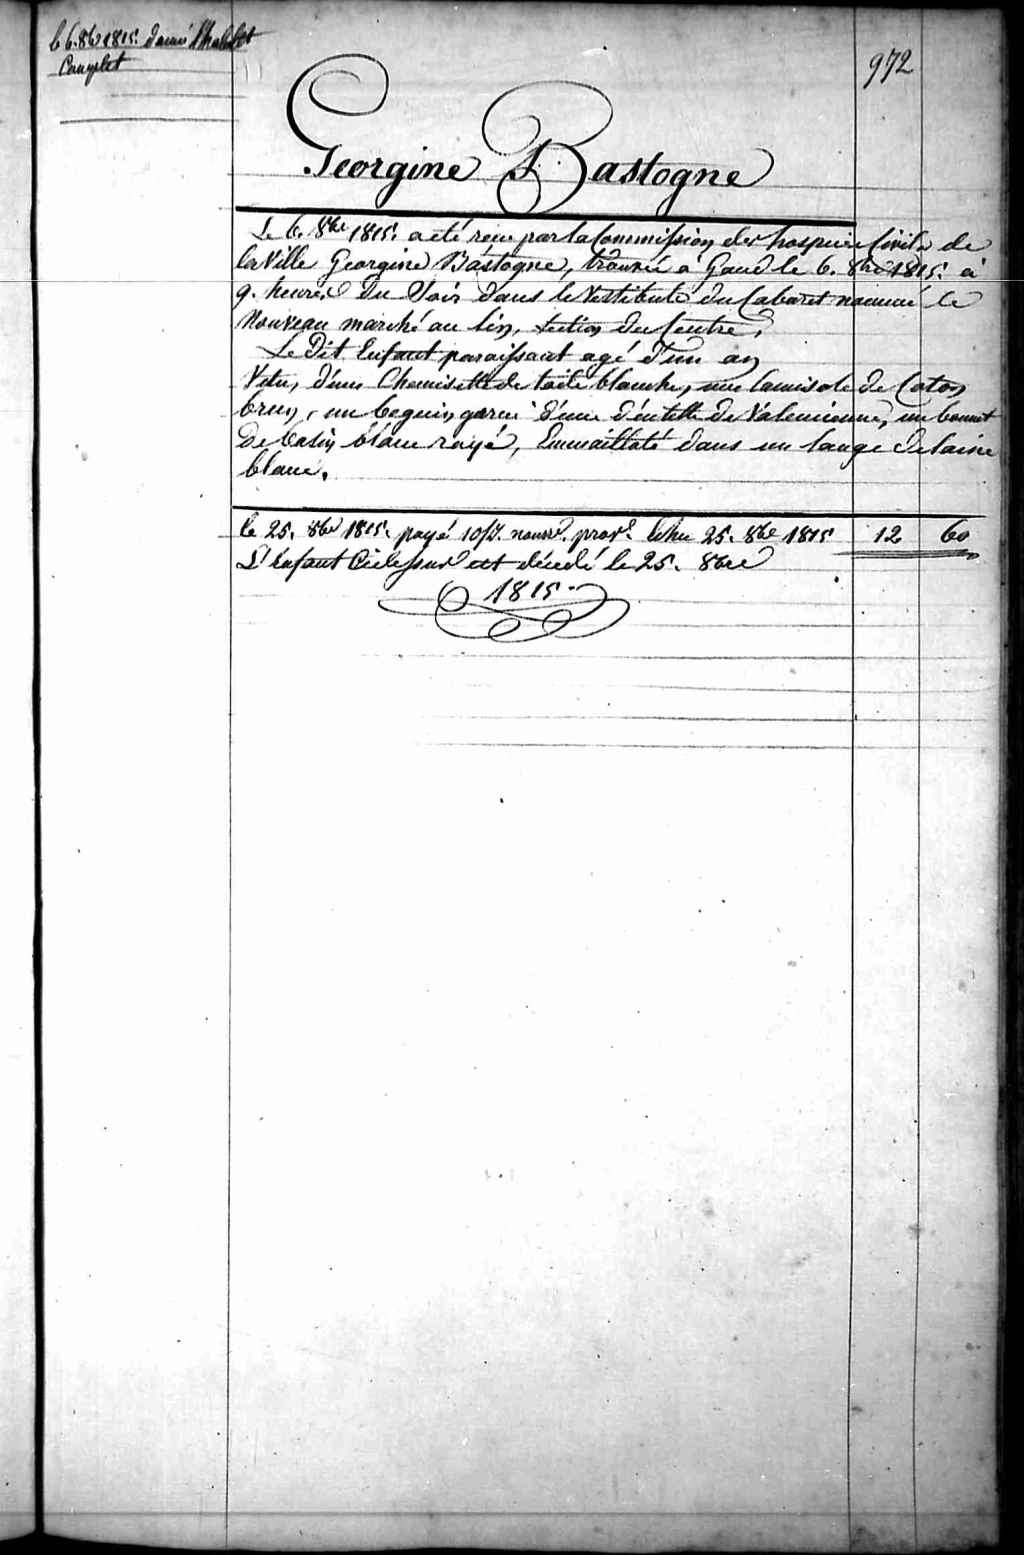 le 6. 8bre 1815. donné l'habillet
Complet
972
Georgine Bastogne
Le 6. 8bre 1815. a eté reçu par la Commission des hospices Civils de
la Ville Georgine Bastogne, trouvée à Gand le 6. 8bre 1815. à
9. heures du Soir dans le Vestibule du Cabaret nommé le
Nouveau marché au lin, Section du Centre,
Le Dit Enfant paraissant agé d'un an
Vetu, d'une Chemisette de toile blanche, une Camisole de Coton
brun, un beguin garni d'une dentelle de Valencienne, un bonnet
De basin blanc rayé, Emmailloté dans un lange de laine
blanc.
le 25. 8bre 1815. payé nourre. provre. Echu 25. 8bre 1815 12 60
L'Enfant Cidessus est décédé le 25. 8bre
1815.